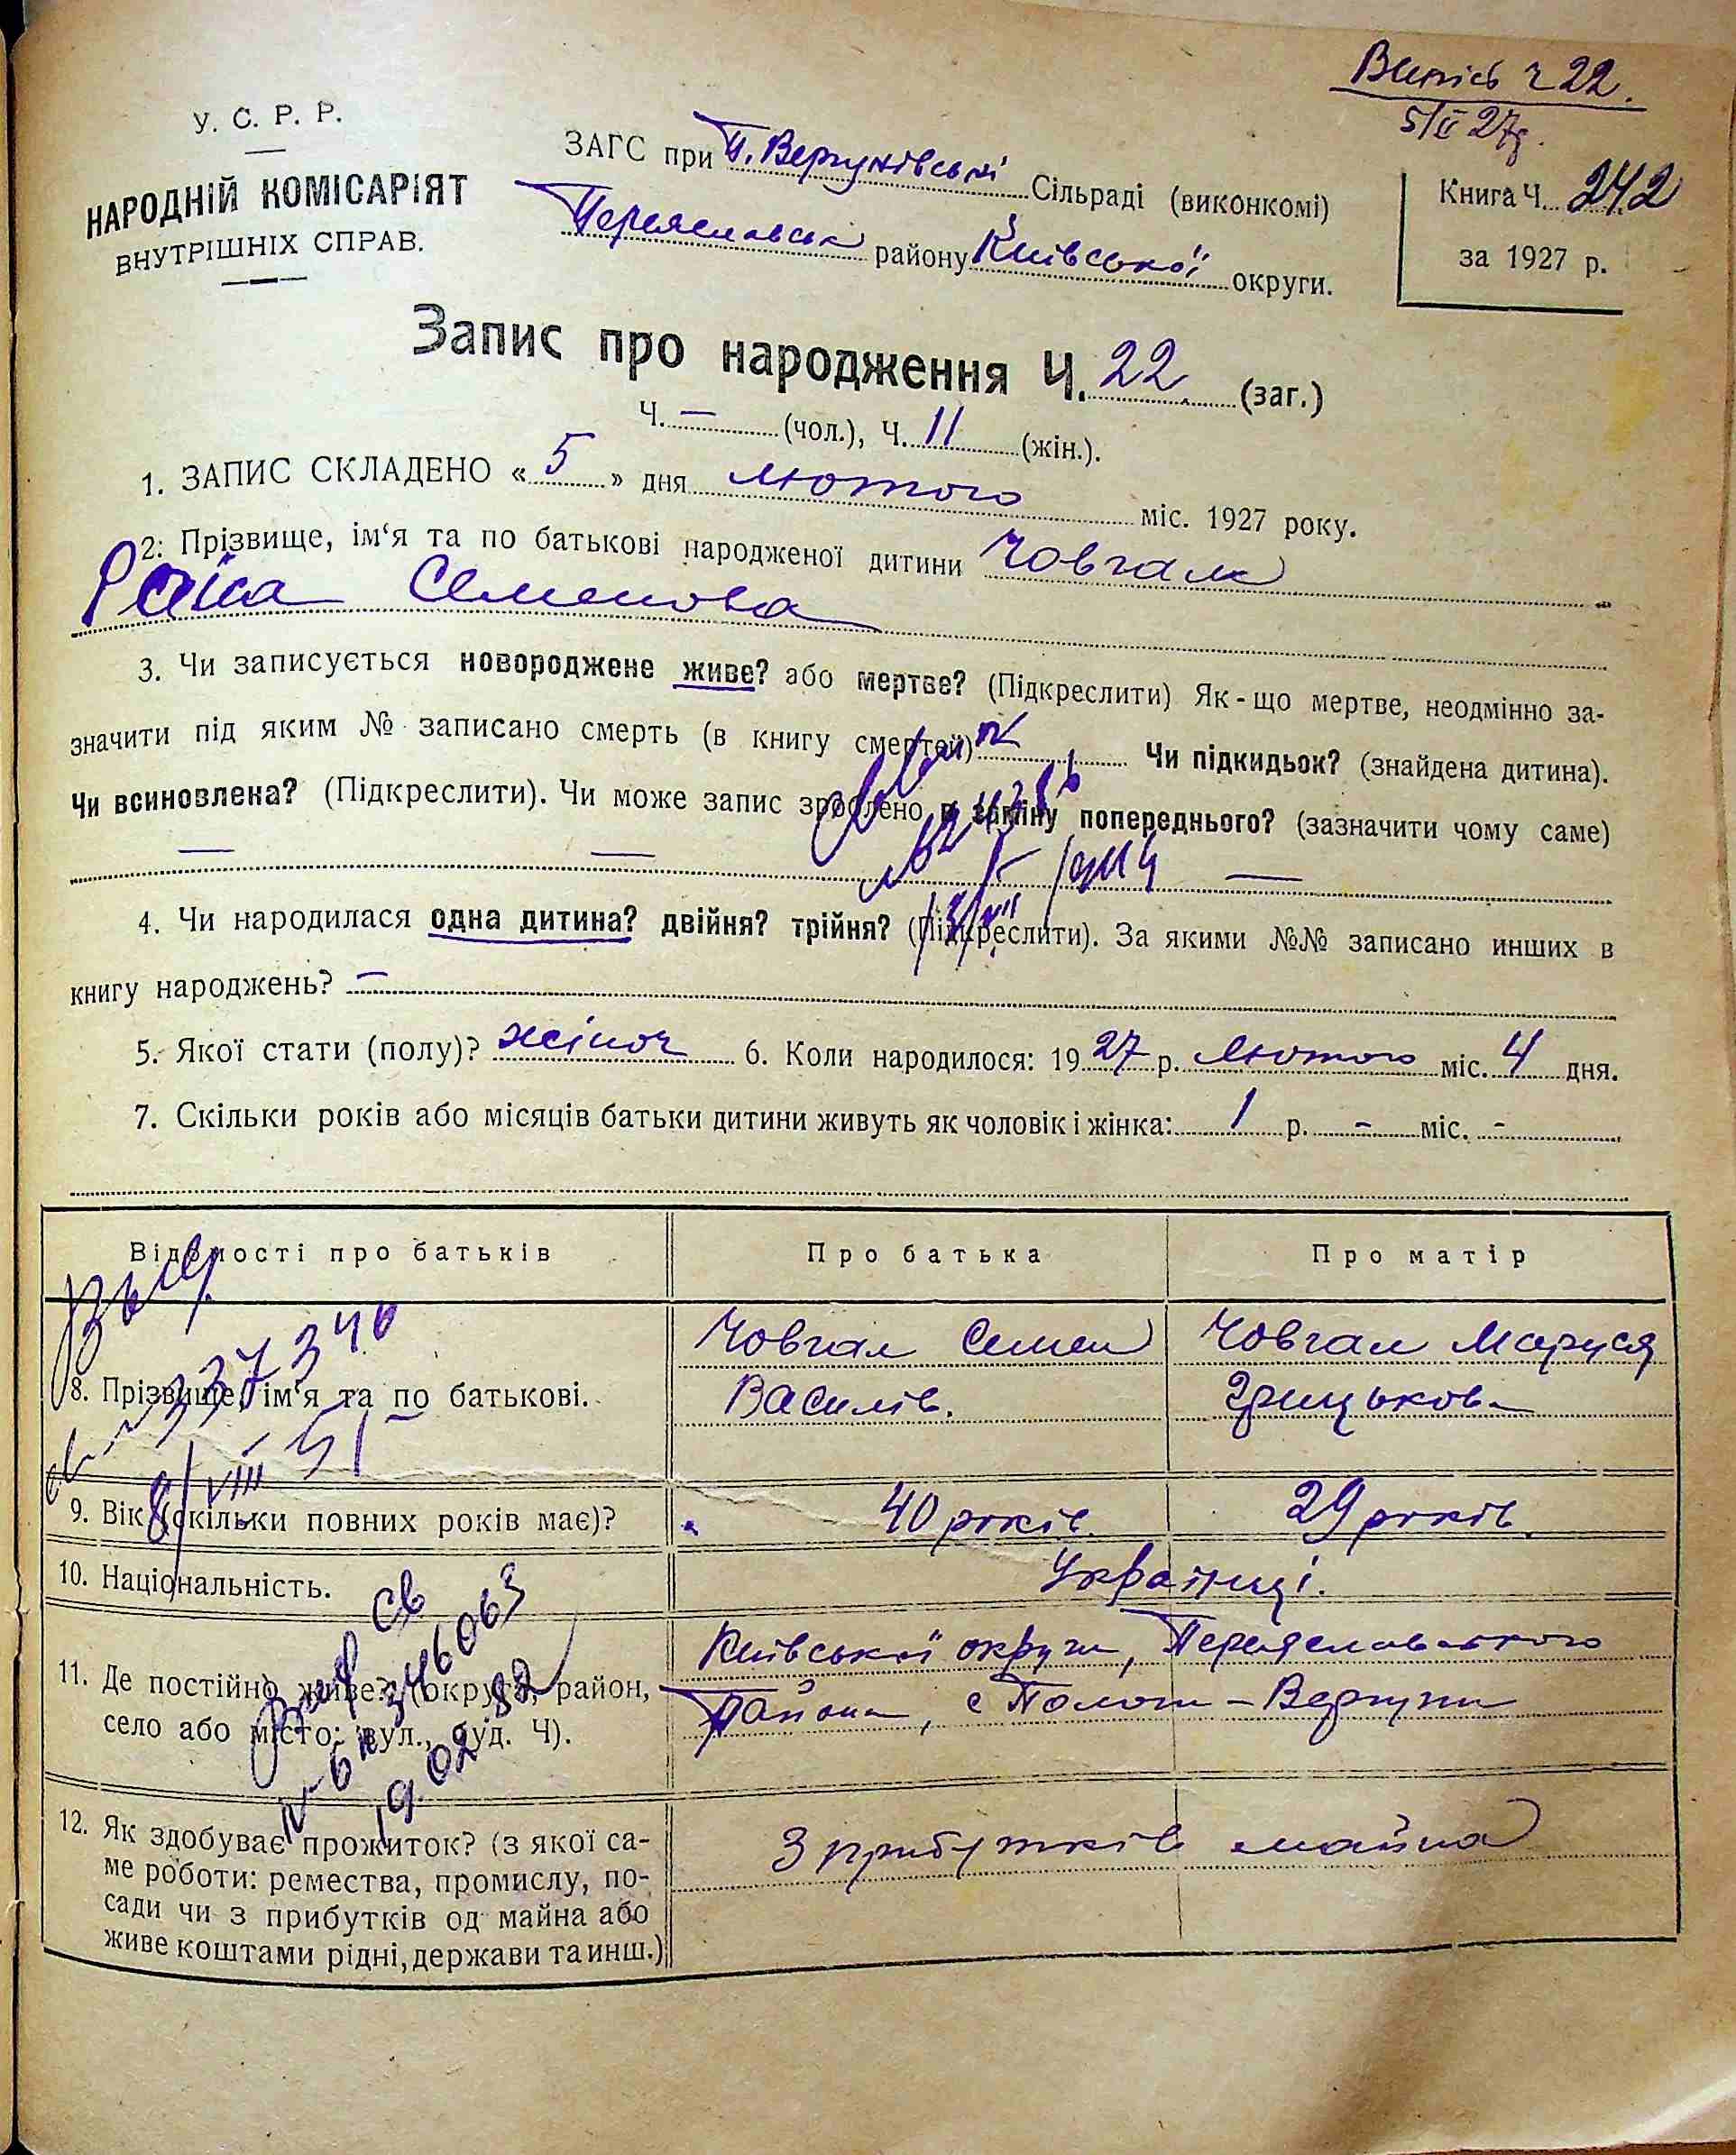 Випісь ч 22.
5/II 27р.
У. С. Р. Р.
НАРОДНІЙ КОМІСАРІЯТ
ВНУТРІШНІХ СПРАВ.
ЗАГС при П. Вергунівські Сільраді (виконкомі)
Переяславськ району Київської округи.
Книга Ч. 242
за 1927 р.
Запис про народження Ч. 22 (заг.)
Ч. — (чол.), Ч. 11 (жін.).
1. ЗАПИС СКЛАДЕНО « 5 » дня лютого міс. 1927 року.
2. Прізвище, ім‘я та по батькові народженої дитини Човгал
Раіса Семенова
3. Чи записується новороджене живе? або мертве? (Підкреслити) Як-що мертве, неодмінно за-
значити під яким № записано смерть (в книгу смертей) Чи підкидьок? (знайдена дитина).
Чи всиновлена? (Підкреслити). Чи може запис зроблено в заміну попереднього? (зазначити чому саме)
— — —
4. Чи народилася одна дитина? двійня? трійня? (Підкреслити). За якими №№ записано инших в
книгу народжень? —
5. Якої стати (полу)? жіноч 6. Коли народилося: 1927 р. Лютого міс. 4 дня.
7. Скільки років або місяців батьки дитини живуть як чоловік і жінка: 1 р. - міс. -
Відомості про батьків Про батька Про матір
8. Прізвище, ім‘я та по батькові. Човгал Семен Василів. Човгал Маруся Грицьков-
№ 337346
8/VIII 51
9. Вік (скільки повних років має)? 40 років. 29 років.
10. Національність. Українці.
11. Де постійно живе? (округа, район,
село або місто: вул., буд. Ч).
Київської округи, Переяславського
района, с Полог - Вергуни
св
346063
19.02.82
12. Як здобуває прожиток? (з якої са-
ме роботи: ремества, промислу, по-
сади чи з прибутків од майна або
живе коштами рідні, держави та инш.)
З прибутків майна